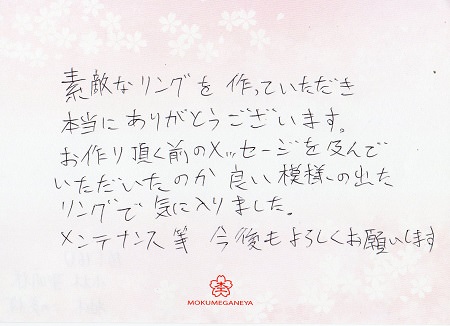 素敵なリングを作っていただき
本当にありがとうございます。
お作り頂く前のメッセージを汲んで
いただいたのか 良い模様の出た
リングで気に入りました。
メンテナンス等 今後もよろしくお願いします
MOKUMEGANEYA